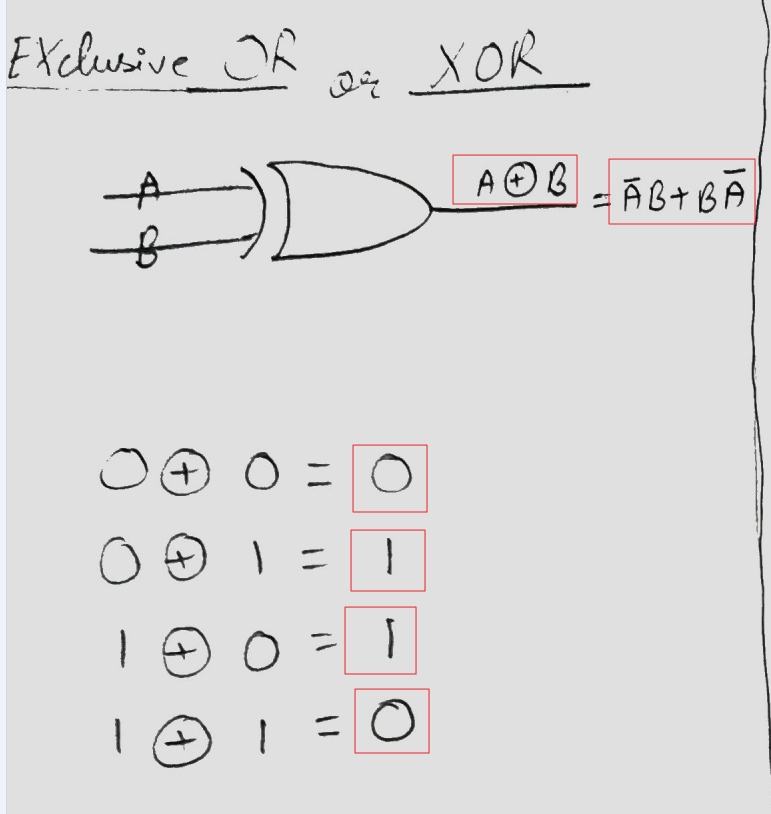 EXclusive OR or XOR
A
A ⊕ B = A̅B + BA̅
B
0 ⊕ 0 = 0
0 ⊕ 1 = 1
1 ⊕ 0 = 1
1 ⊕ 1 = 0